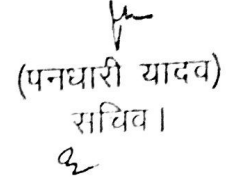 (पनधारी यादव)
सचिव।